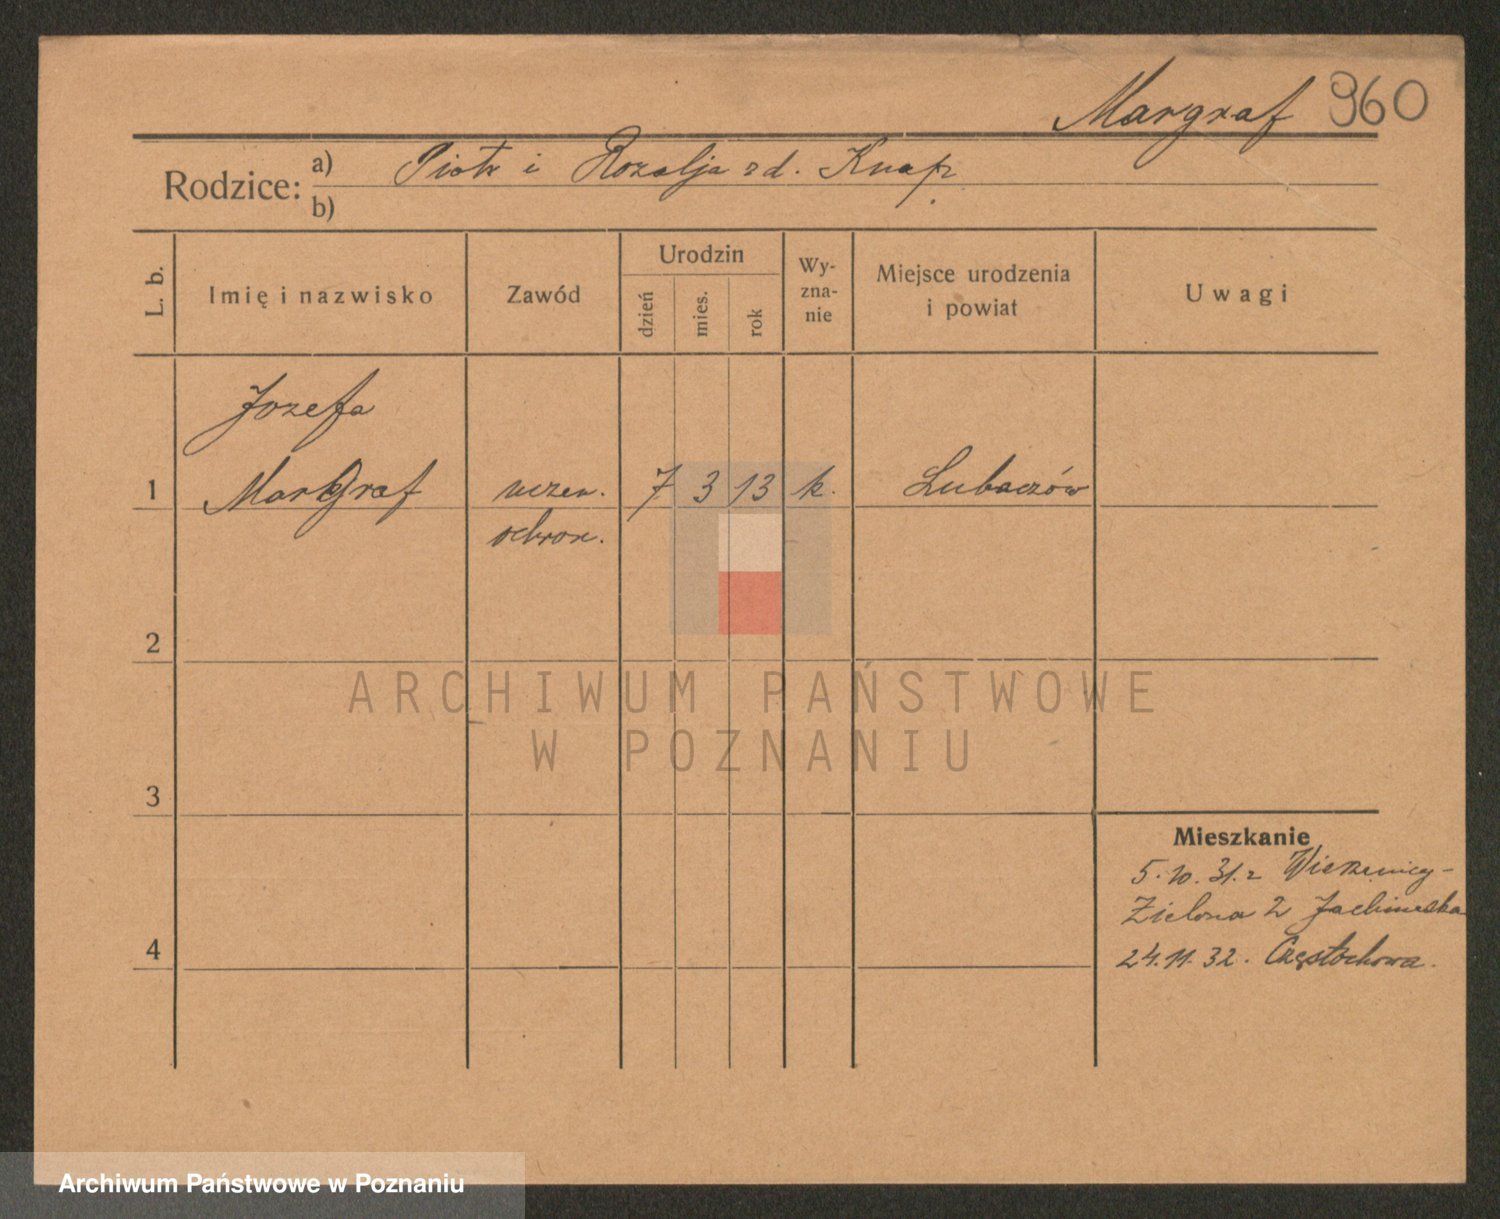 Margraf 960
Rodzice: a) Piotr i Rozalja zd. Knap
b)
L. b. Imię i nazwisko Zawód Urodzin dzień mies. rok Wy-zna-nie Miejsce urodzenia i powiat Uwagi
Józefa
1 Margraf uczen. 7 3 13 k. Lubaczów
ochron.
2
ARCHIWUM PAŃSTWOWE
W POZNANIU
3
Mieszkanie
5.10.31. z
Zielona 2
4 24.11.32. Częstochowa.
Archiwum Państwowe w Poznaniu